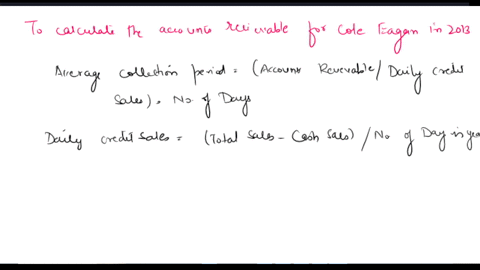 To calculate the accounts receivable for Cole Eagan in 2013
Average collection period = (Account Receivable / Daily credit
Sales) × No of Days
Daily credit sales = (Total sales - Cash sales) / No of Day in year